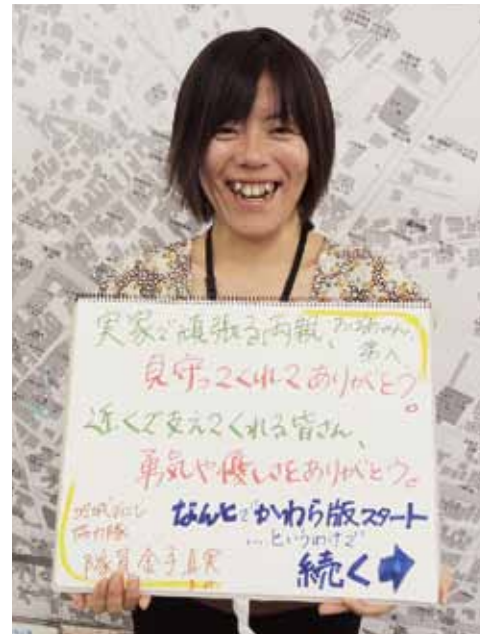 実家で頑張る両親、おばあちゃん、
弟へ
見守ってくれてありがとう。
近くで支えてくれる皆さん、
勇気や優しさをありがとう。
地域おこし
協力隊
隊員 金子真実
なんとでかわら版スタート
…というわけで
続く